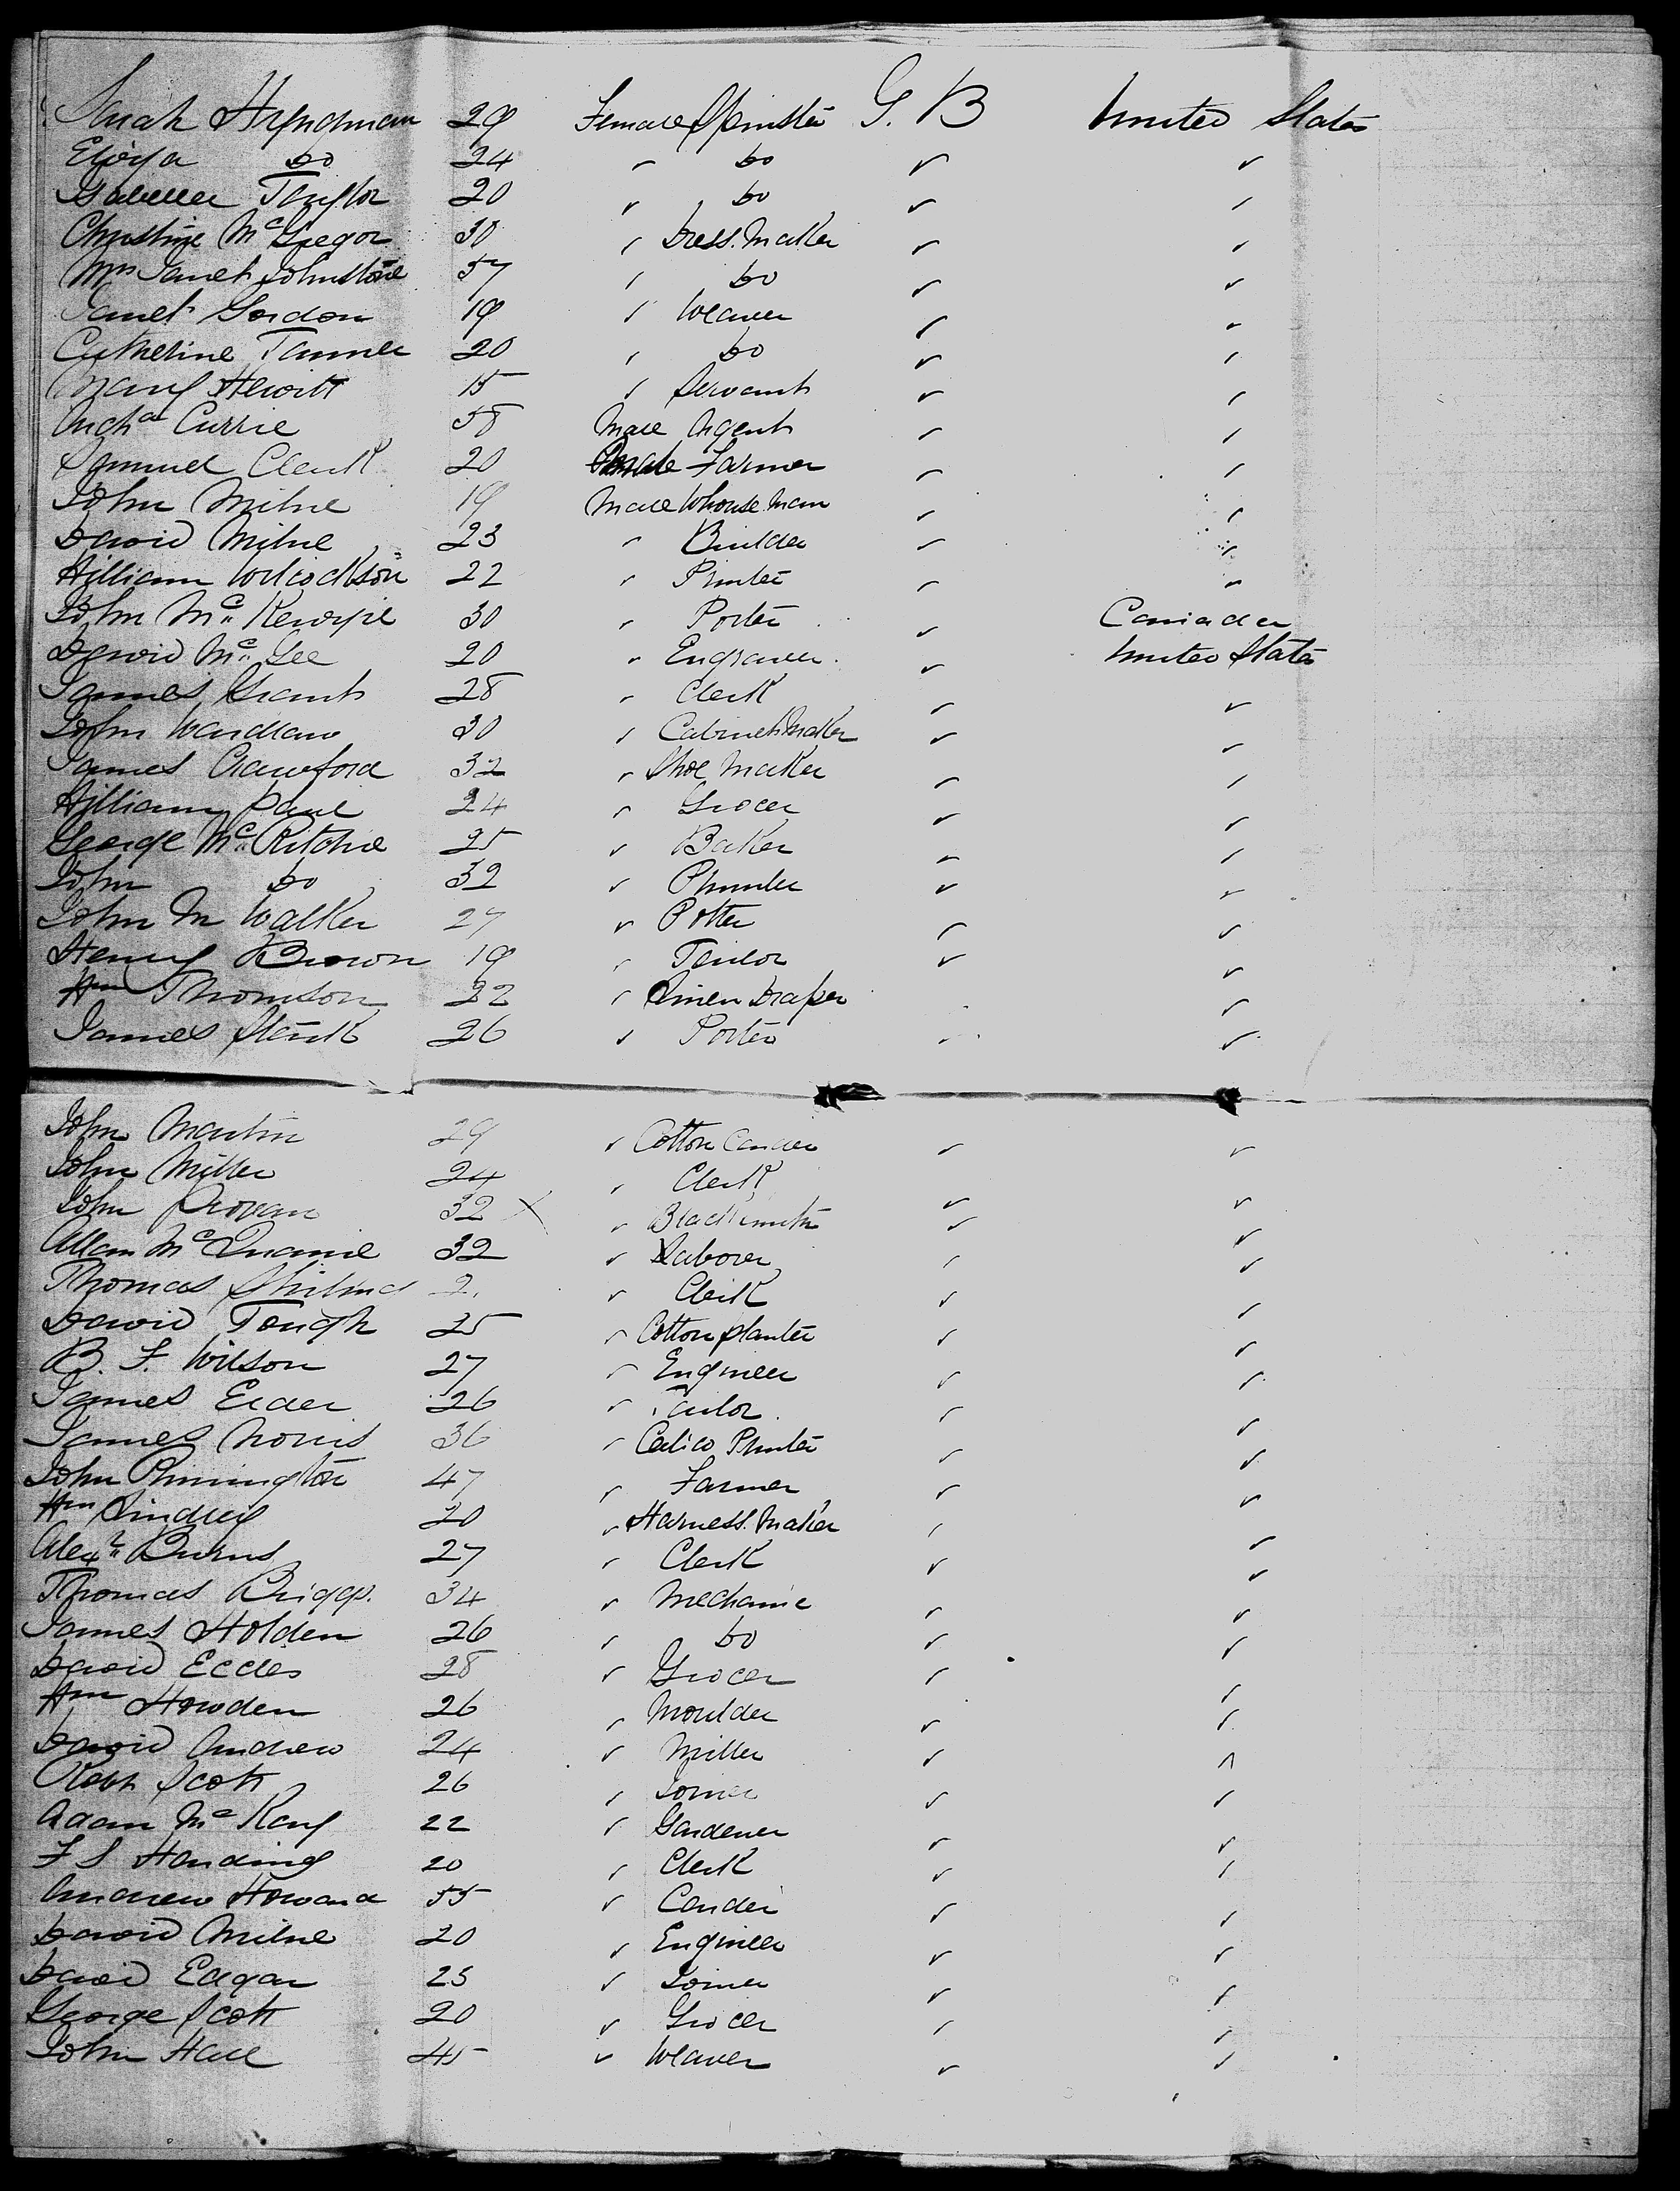 Sarah Hyndman 29 Female Spinster G. B United States
Eliza do 24 " do " "
Isabella Taylor 20 " do " "
Christine McGregor 30 " Dress Maker " "
Mrs Janet Johnstone 57 " do " "
Janet Gordon 19 " Weaver " "
Catherine Tanner 20 " do " "
Mary Hewitt 15 " Servant " "
Archd Currie 58 Male Agent " "
Samuel Clerk 20 Farmer " "
John Milne 19 Male Whouse Man " "
David Milne 23 " Builder " "
William Wilcockson 22 " Printer " "
John Mc Kenzie 30 " Porter " Canada
David Mc Gee 20 " Engraver " United States
James Grant 28 " Clerk " "
John Wardlaw 30 " Cabinet Maker " "
James Crawford 32 " Shoe Maker " "
William Paul 24 " Grocer " "
George Mc Ritchie 25 " Baker " "
John do 32 " Plumber " "
John M Walker 27 " Potter " "
Henry Brown 19 " Tailor " "
Wm Thomson 22 " Linen Draper "
James Stark 26 " Porter " "
John Martin 29 " Cotton Carder " "
John Miller 24 " Clerk " "
John Provan 32 X " Blacksmith " "
Allan Mc Quarrie 32 " Laborer " "
Thomas 2 " Clerk " "
David Tough 25 " Cotton planter " "
B. F. Wilson 27 " Engineer " "
James Elder 26 " Tailor " "
James Norris 36 " Calico Printer " "
John Pinnington 47 " Farmer " "
Wm Lindley 20 " Harness Maker " "
Alexr Burns 27 " Clerk " "
Thomas Briggs. 34 " Mechanic " "
James Holden 26 " do " "
David Eccles 28 " Grocer " "
Wm Howden 26 " Moulder " "
David Andrew 24 " Miller " "
Robt Scott 26 " Joiner " "
Adam Mc Kay 22 " Gardener " "
F S Harding 20 " Clerk " "
Andrew Howard 55 " Carder " "
David Milne 20 " Engineer " "
David Edgar 25 " Joiner " "
George Scott 20 " Grocer " "
John Hall 45 " Weaver " "